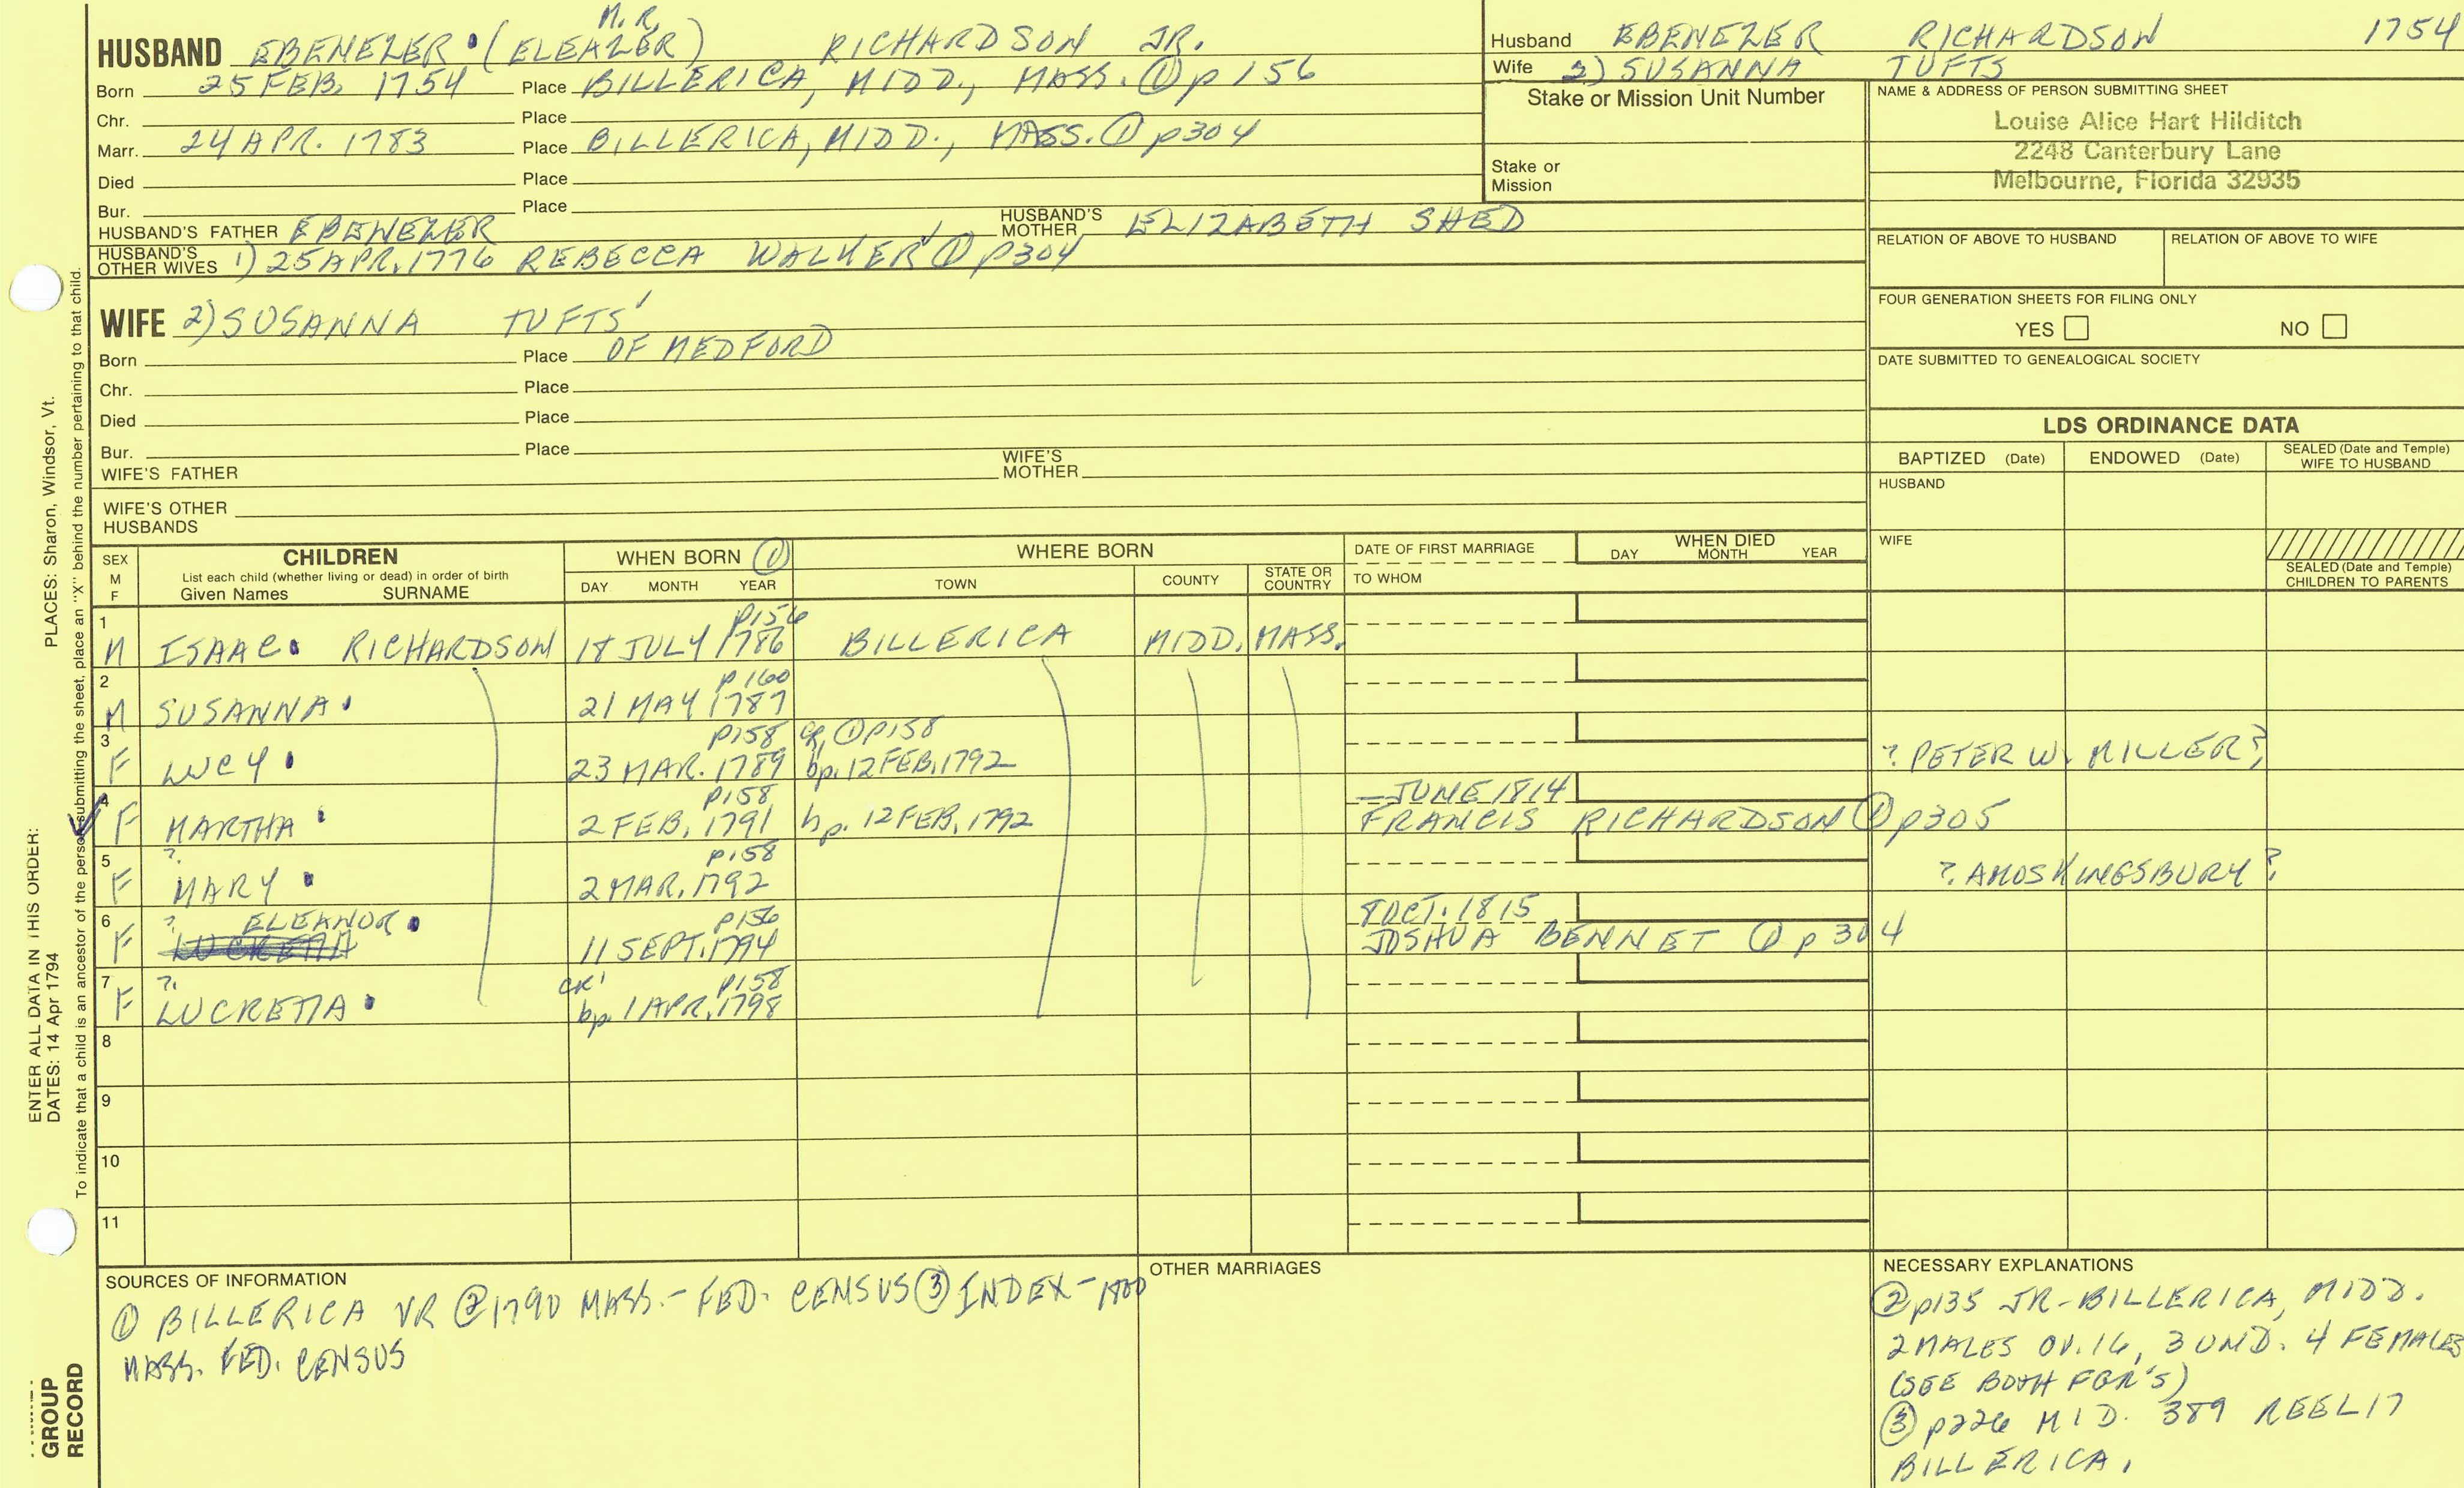 M. R.
HUSBAND EBENEZER (ELEAZER) RICHARDSON JR.
Born 25 FEB. 1754 Place BILLERICA, MIDD., MASS. ① p 156
Chr. Place
Marr. 24 APR. 1783 Place BILLERICA, MIDD., MASS. ① p304
Died Place
Bur. Place
HUSBAND'S FATHER EBENEZER HUSBAND'S MOTHER ELIZABETH SHED
HUSBAND'S OTHER WIVES 1) 25 APR. 1776 REBECCA WALKER ① p304
Husband EBENEZER RICHARDSON 1754
Wife 2) SUSANNA TUFTS
Stake or Mission Unit Number
Stake or Mission
NAME & ADDRESS OF PERSON SUBMITTING SHEET
Louise Alice Hart Hilditch
2248 Canterbury Lane
Melbourne, Florida 32935
RELATION OF ABOVE TO HUSBAND RELATION OF ABOVE TO WIFE
FOUR GENERATION SHEETS FOR FILING ONLY
YES NO
DATE SUBMITTED TO GENEALOGICAL SOCIETY
WIFE 2) SUSANNA TUFTS
Born Place OF MEDFORD
Chr. Place
Died Place
Bur. Place
WIFE'S FATHER WIFE'S MOTHER
WIFE'S OTHER HUSBANDS
LDS ORDINANCE DATA
BAPTIZED (Date) ENDOWED (Date) SEALED (Date and Temple) WIFE TO HUSBAND
HUSBAND
WIFE
SEALED (Date and Temple) CHILDREN TO PARENTS
SEX M F
CHILDREN
List each child (whether living or dead) in order of birth
Given Names SURNAME
WHEN BORN ①
DAY MONTH YEAR
WHERE BORN
TOWN COUNTY STATE OR COUNTRY
DATE OF FIRST MARRIAGE
TO WHOM
WHEN DIED
DAY MONTH YEAR
1 p156
M ISAAC RICHARDSON 18 JULY 1786 BILLERICA MIDD. MASS.
2 p160
M SUSANNA 21 MAY 1787
3 p158 ① p158
F LUCY 23 MAR. 1789 bp. 12 FEB. 1792 ? PETER W. MILLER?
4 p158 — JUNE 1814
F MARTHA 2 FEB. 1791 bp. 12 FEB. 1792 FRANCIS RICHARDSON ① p305
5 ? p158
F MARY 2 MAR. 1792 ? AMOS KINGSBURY ?
6 ? ELEANOR p156 8 OCT. 1815
F LUCRETIA 11 SEPT. 1794 JOSHUA BENNET ① p304
7 ? CR' p158
F LUCRETIA bp. 1 APR. 1798
8
9
10
11
SOURCES OF INFORMATION
① BILLERICA VR ② 1790 MASS. - FED. CENSUS ③ INDEX - 1800
MASS. FED. CENSUS
OTHER MARRIAGES
NECESSARY EXPLANATIONS
② p135 JR - BILLERICA, MIDD.
2 MALES OV. 16, 3 UND. 4 FEMALES
(SEE BOTH FGR'S)
③ p226 MID. 389 REEL 17
BILLERICA.
ENTER ALL DATA IN THIS ORDER:
PLACES: Sharon, Windsor, Vt.
DATES: 14 Apr 1794
To indicate that a child is an ancestor of the person submitting the sheet, place an "X" behind the number pertaining to that child.
GROUP
RECORD